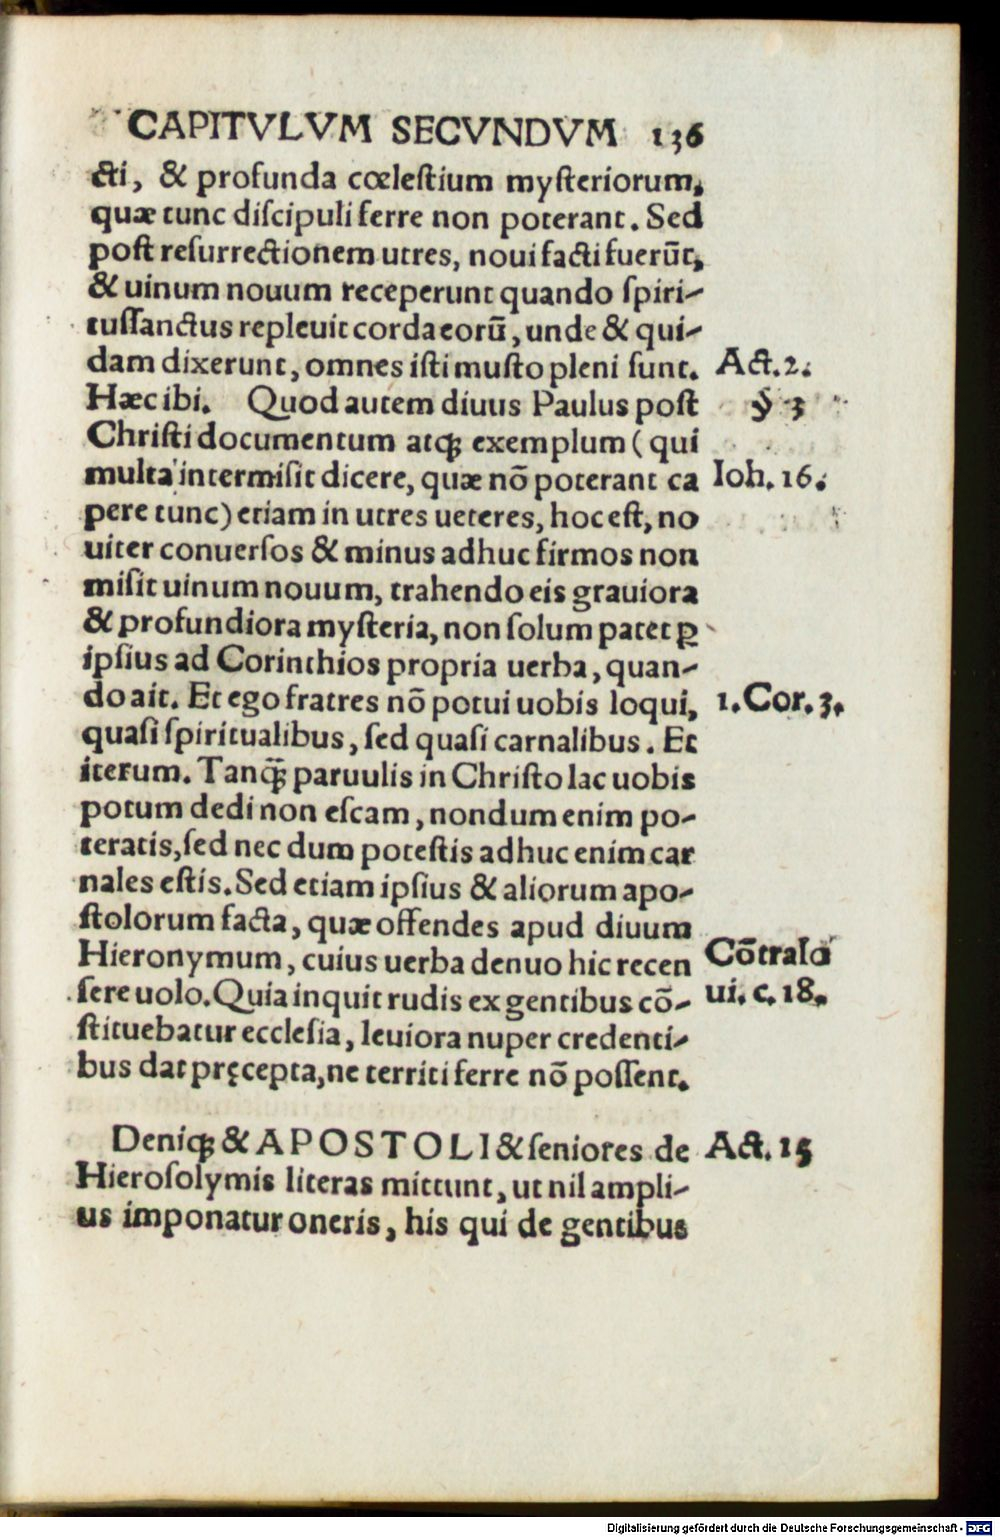 CAPITVLVM SECVNDVM 136
cti, & profunda cœlestium mysteriorum,
quæ tunc discipuli ferre non poterant. Sed
post resurrectionem utres, noui facti fuerūt,
& uinum nouum receperunt quando spiri-
tussanctus repleuit corda eorū, unde & qui-
dam dixerunt, omnes isti musto pleni sunt. Act. 2.
Hæc ibi. Quod autem diuus Paulus post § 3
Christi documentum atq; exemplum (qui
multa intermisit dicere, quæ nō poterant ca Ioh. 16.
pere tunc) etiam in utres ueteres, hoc est, no
uiter conuersos & minus adhuc firmos non
misit uinum nouum, trahendo eis grauiora
& profundiora mysteria, non solum patet ꝑ
ipsius ad Corinthios propria uerba, quan-
do ait. Et ego fratres nō potui uobis loqui, 1. Cor. 3.
quasi spiritualibus, sed quasi carnalibus. Et
iterum. Tanq̄; paruulis in Christo lac uobis
potum dedi non escam, nondum enim po-
teratis, sed nec dum potestis adhuc enim car
nales estis. Sed etiam ipsius & aliorum apo-
stolorum facta, quæ offendes apud diuum
Hieronymum, cuius uerba denuo hic recen Cōtra Io
sere uolo. Quia inquit rudis ex gentibus cō- ui. c. 18.
stituebatur ecclesia, leuiora nuper credenti-
bus dat pręcepta, ne territi ferre nō possent.
Deniq; & APOSTOLI & seniores de Act. 15
Hierosolymis literas mittunt, ut nil ampli-
us imponatur oneris, his qui de gentibus
Digitalisierung gefördert durch die Deutsche Forschungsgemeinschaft - DFG